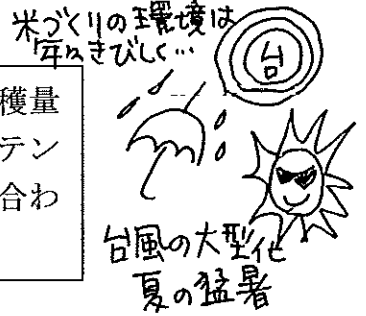 米づくりの環境は
年々きびしく…
台
穫量
テン
合わ
台風の大型化
夏の猛暑